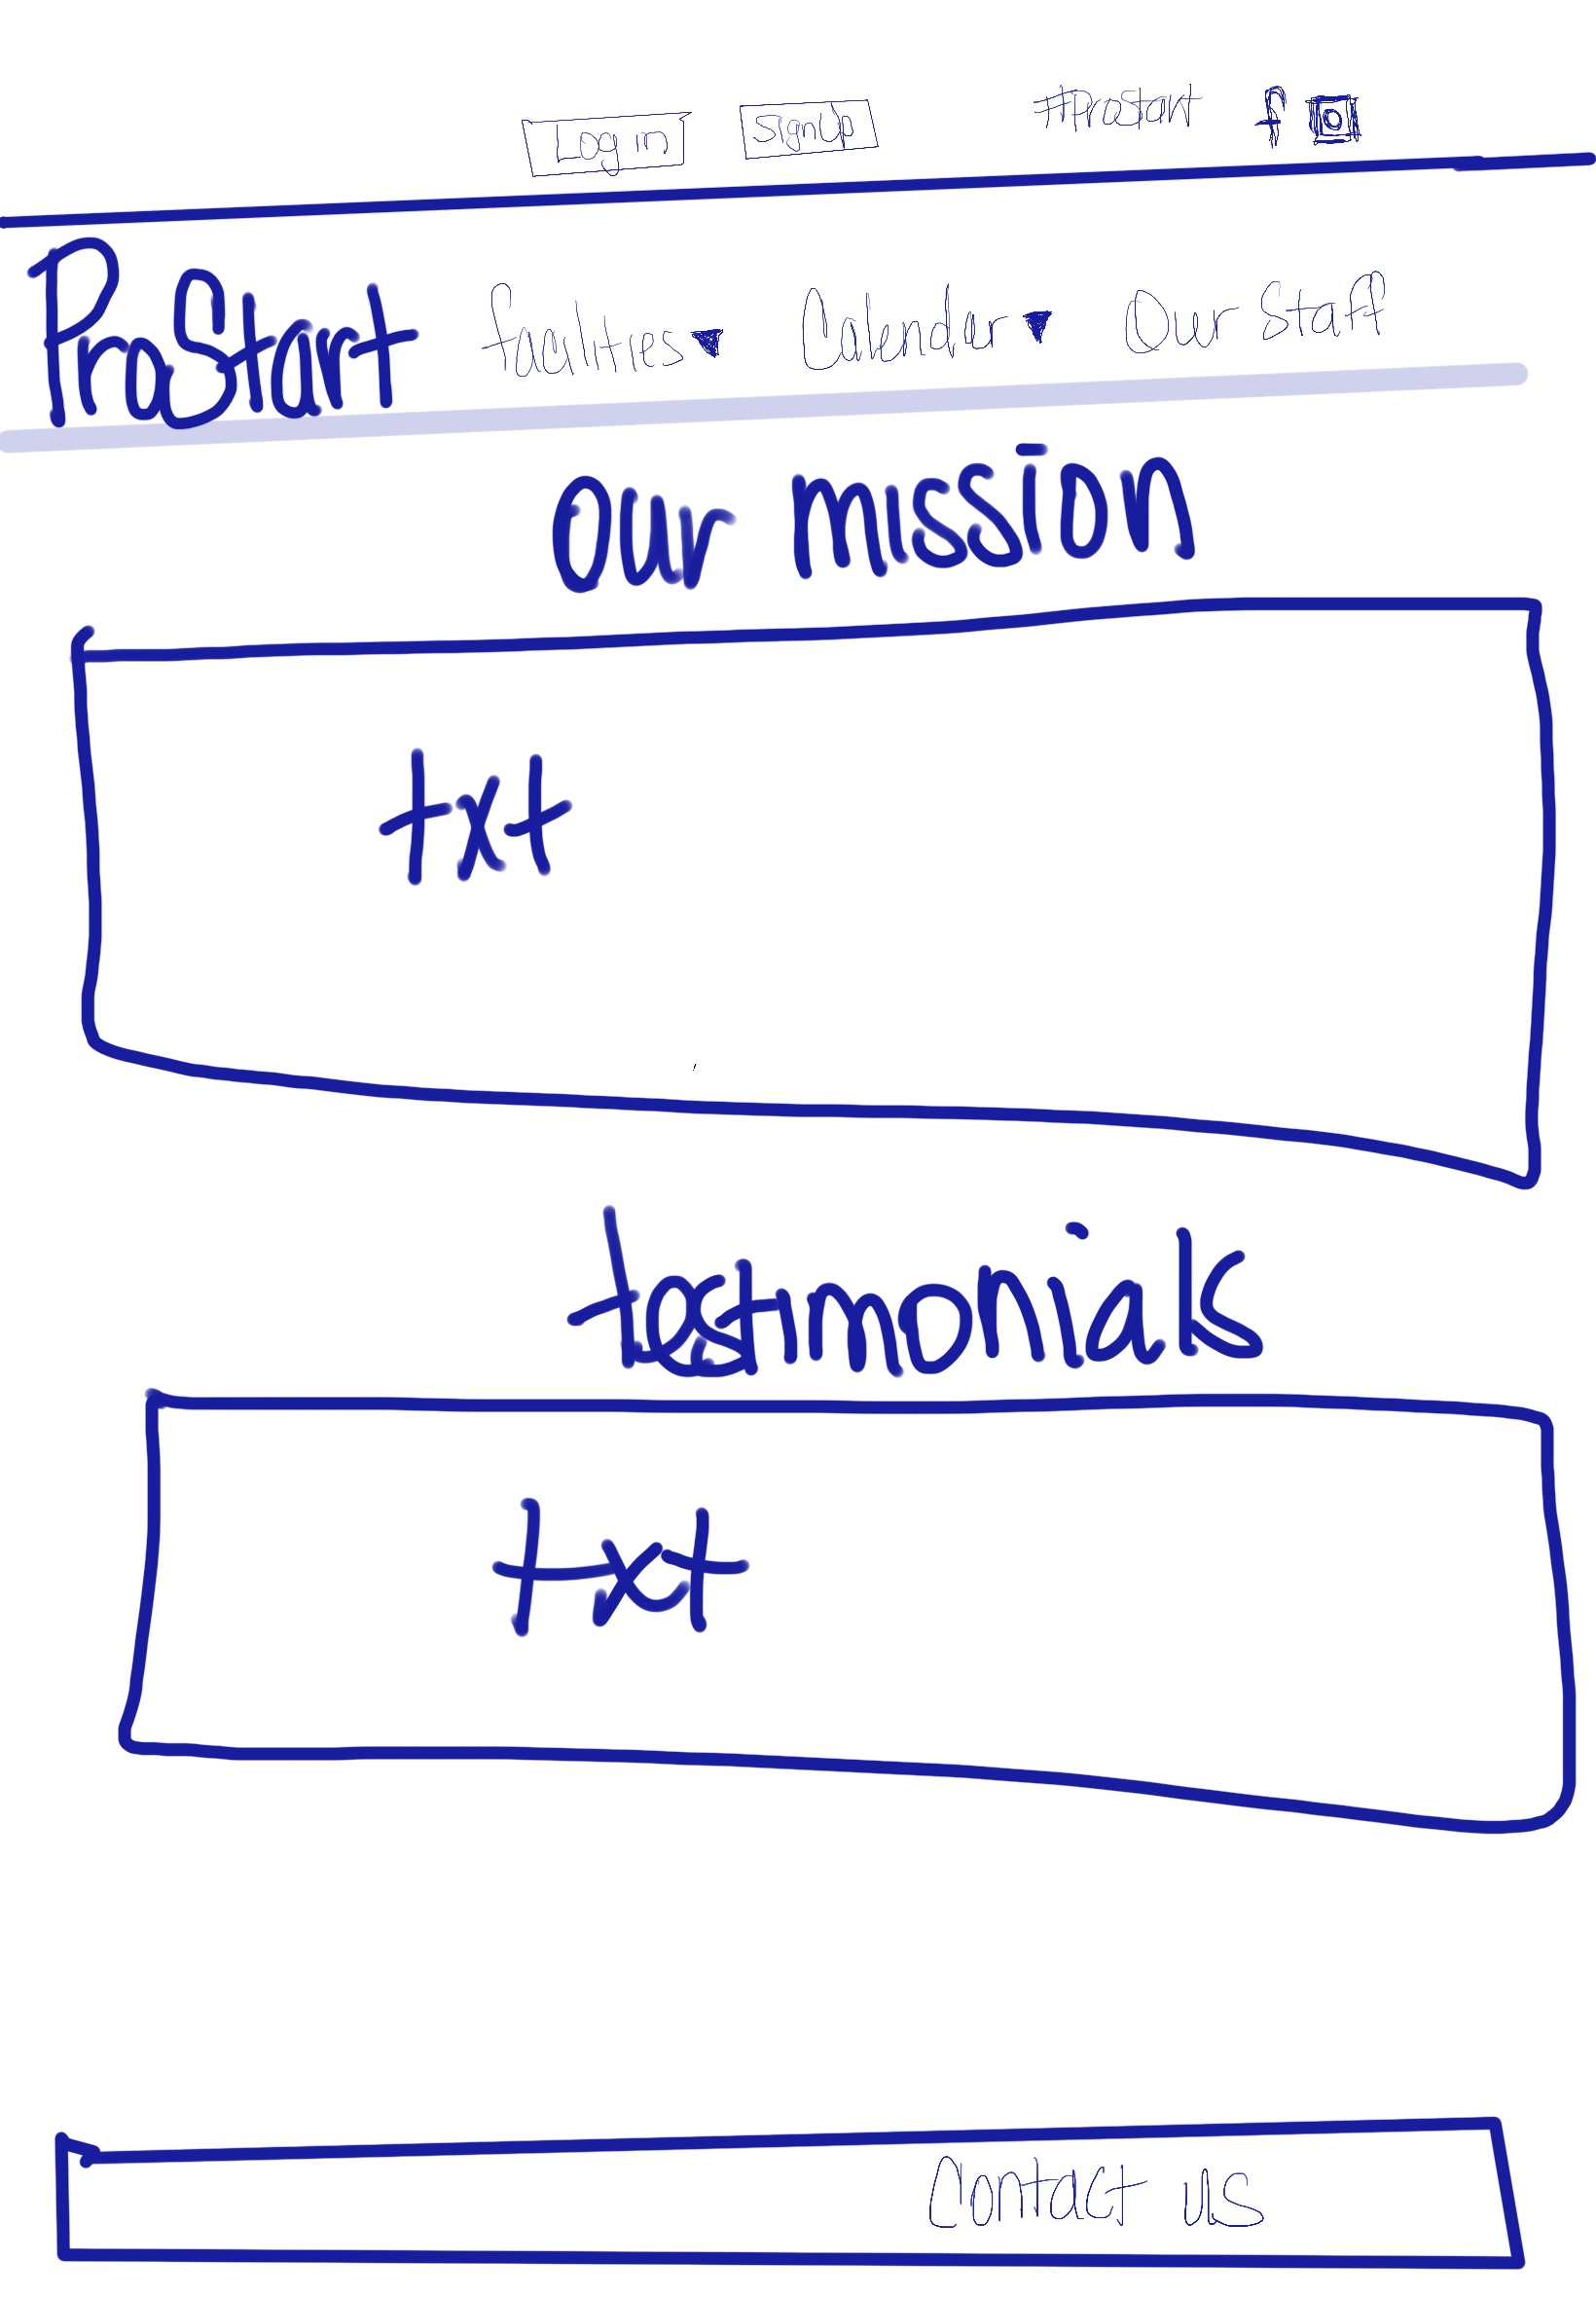 Log in SignUp #ProStart f
ProStart facilities Calender Our Staff
our mission
txt
testmonials
txt
Contact us